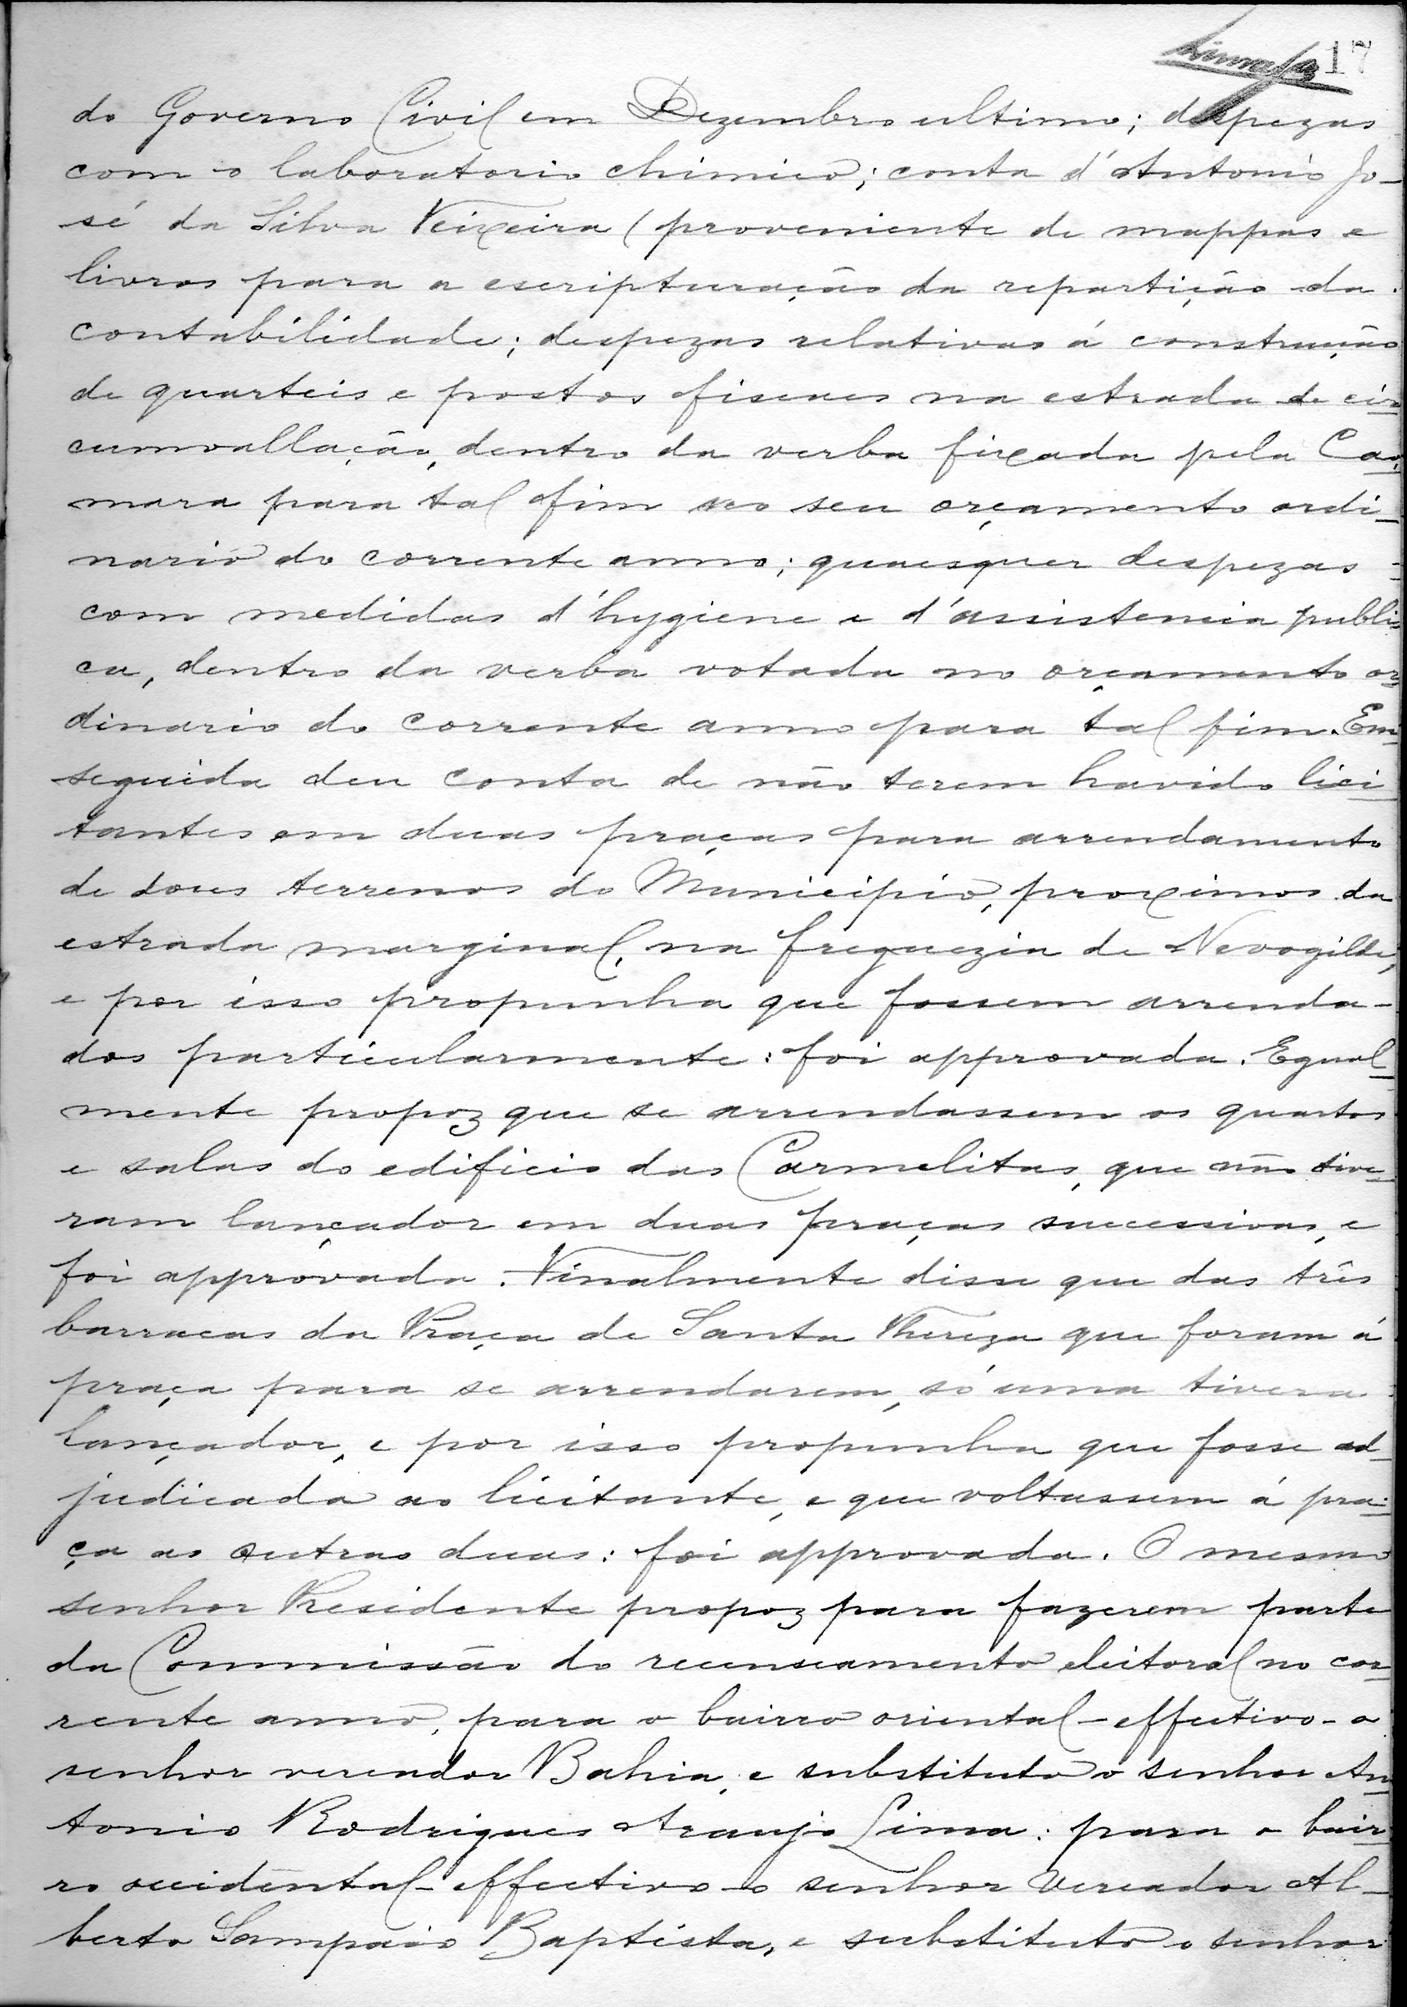 17
do Governo Civil em Dezembro ultimo; despezas
com o laboratorio chimico; conta d'Antonio Jo-
sé da Silva Teixeira (proveniente de mappas e
livros para a escripturação da repartição da
contabilidade; despezas relativas á construcção
de quarteis e postos fiscaes na estrada de cir-
cumvallação, dentro da verba fixada pela Ca-
mara para tal fim no seu orçamento ordi-
nario do corrente anno; quaesquer despezas
com medidas d'hygiene e d'assistencia publi-
ca, dentro da verba votada no orçamento or-
dinario do corrente anno para tal fim. Em
seguida deu conta de não terem havido lici-
tantes em duas praças para arrendamento
de dous terrenos do Municipio, proximos da
estrada marginal, na freguezia de Nevogilde,
e por isso propunha que fossem arrenda-
dos particularmente: foi approvada. Egual-
mente propoz que se arrendassem os quartos
e salas do edificio das Carmelitas, que não tive-
ram lançador em duas praças successivas, e
foi approvada. Finalmente disse que das três
barracas da Praça de Santa Thereza que foram á
praça para se arrendarem, só uma tivera
lançador, e por isso propunha que fosse ad-
judicada ao licitante, e que voltassem á pra-
ça as outras duas: foi approvada. O mesmo
senhor Presidente propoz para fazerem parte
da Commissão do recenseamento eleitoral no cor-
rente anno, para o bairro oriental - effectivo - o
senhor vereador Bahia, e substituto o senhor An-
tonio Rodrigues Araujo Lima: para o bair-
ro occidental - effectivo - o senhor vereador Al-
berto Sampaio Baptista, e substituto o senhor